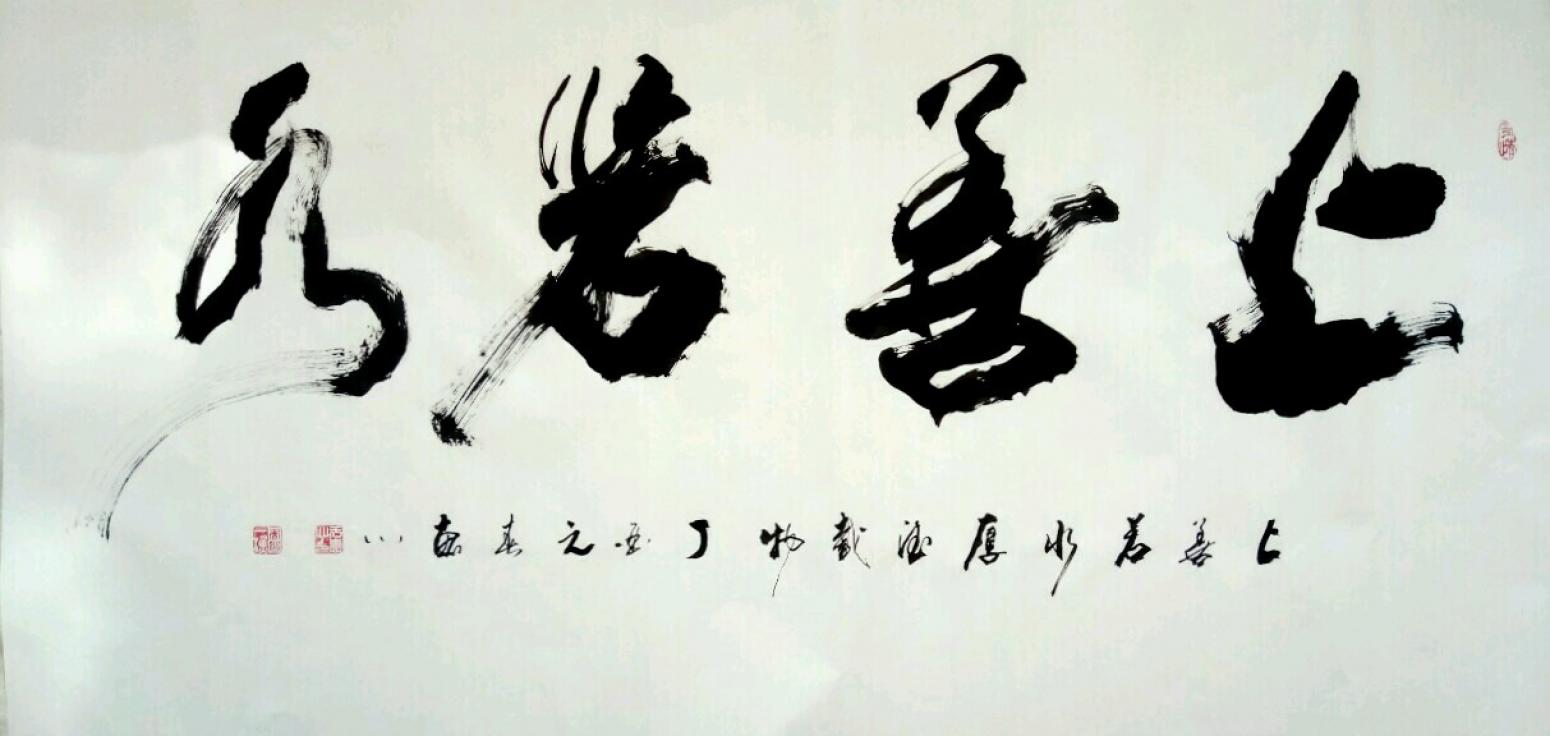 上善若水
上善若水厚德载物丁酉元春